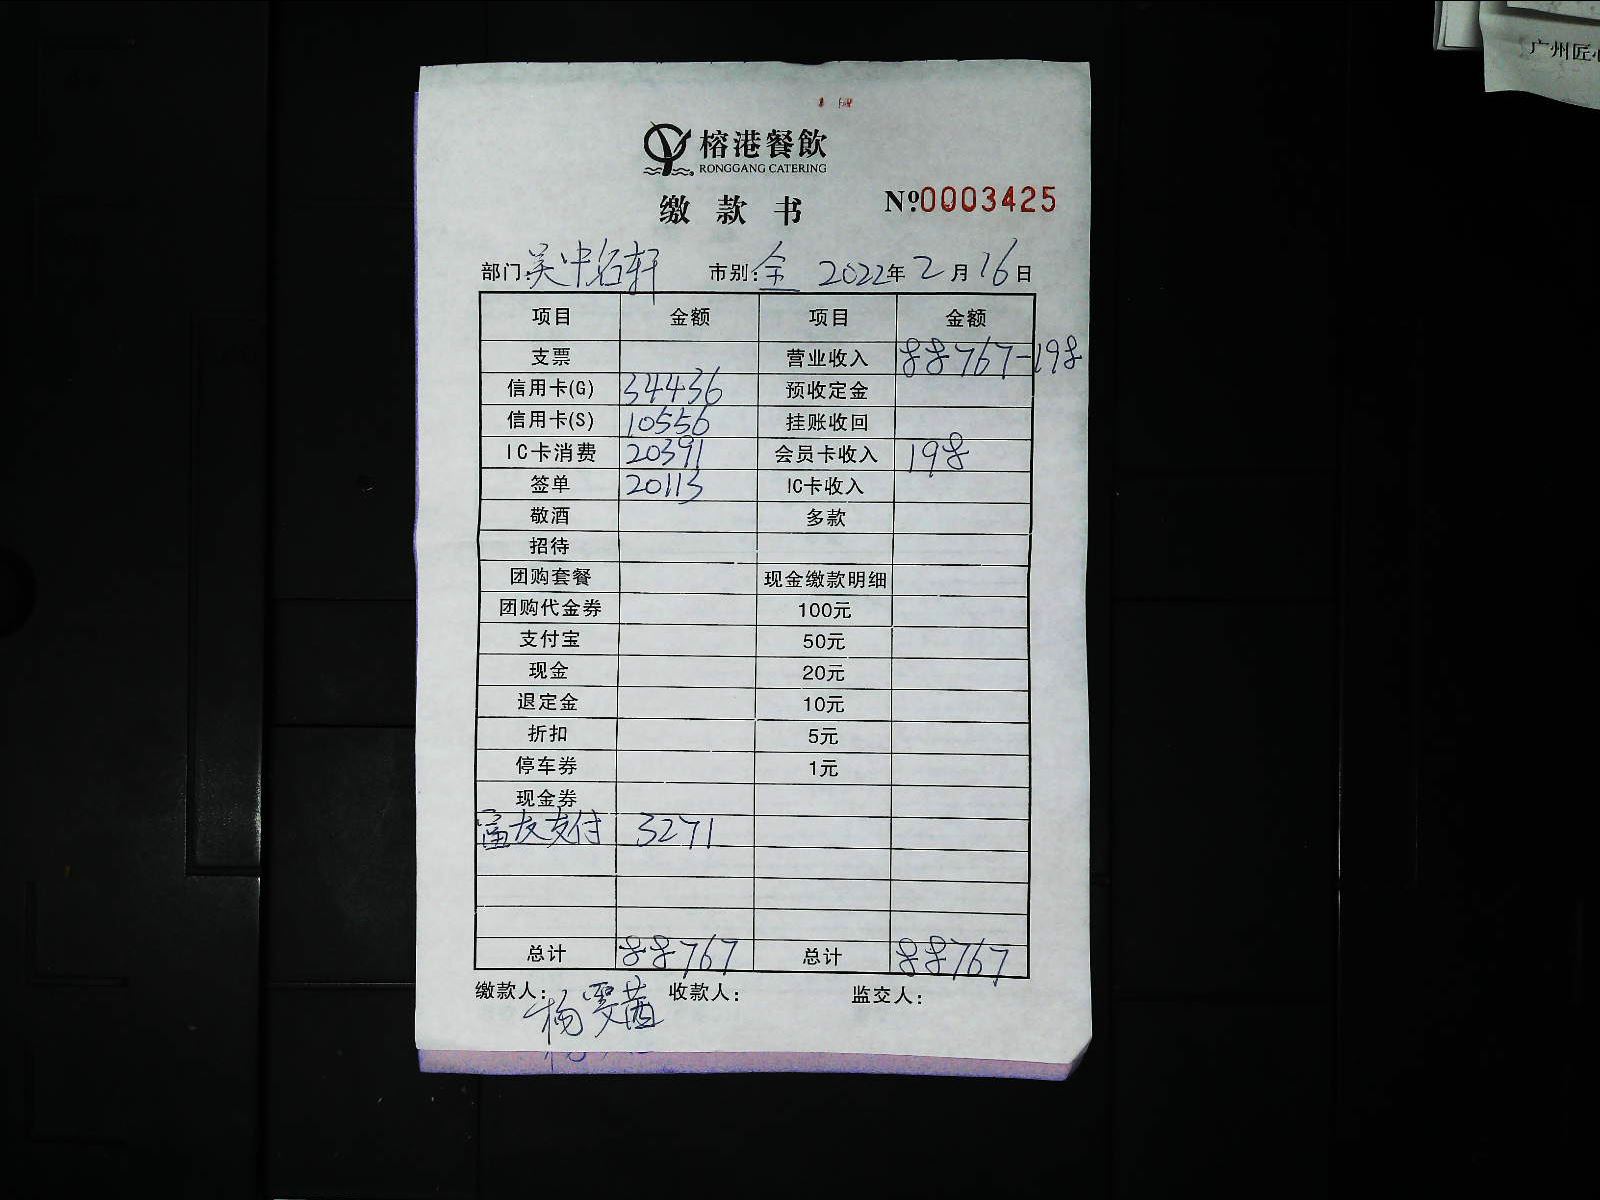 广州匠
榕港餐飲
RONGGANG CATERING
缴款书 Nº0003425
部门:吴中名轩 市别:全 2022年2月16日
项目 金额 项目 金额
支票 营业收入 88767-198
信用卡(G) 34436 预收定金
信用卡(S) 10556 挂账收回
IC卡消费 20391 会员卡收入 198
签单 20113 IC卡收入
敬酒 多款
招待
团购套餐 现金缴款明细
团购代金券 100元
支付宝 50元
现金 20元
退定金 10元
折扣 5元
停车券 1元
现金券
富友支付 3271
总计 88767 总计 88767
缴款人:杨雯茜 收款人: 监交人: